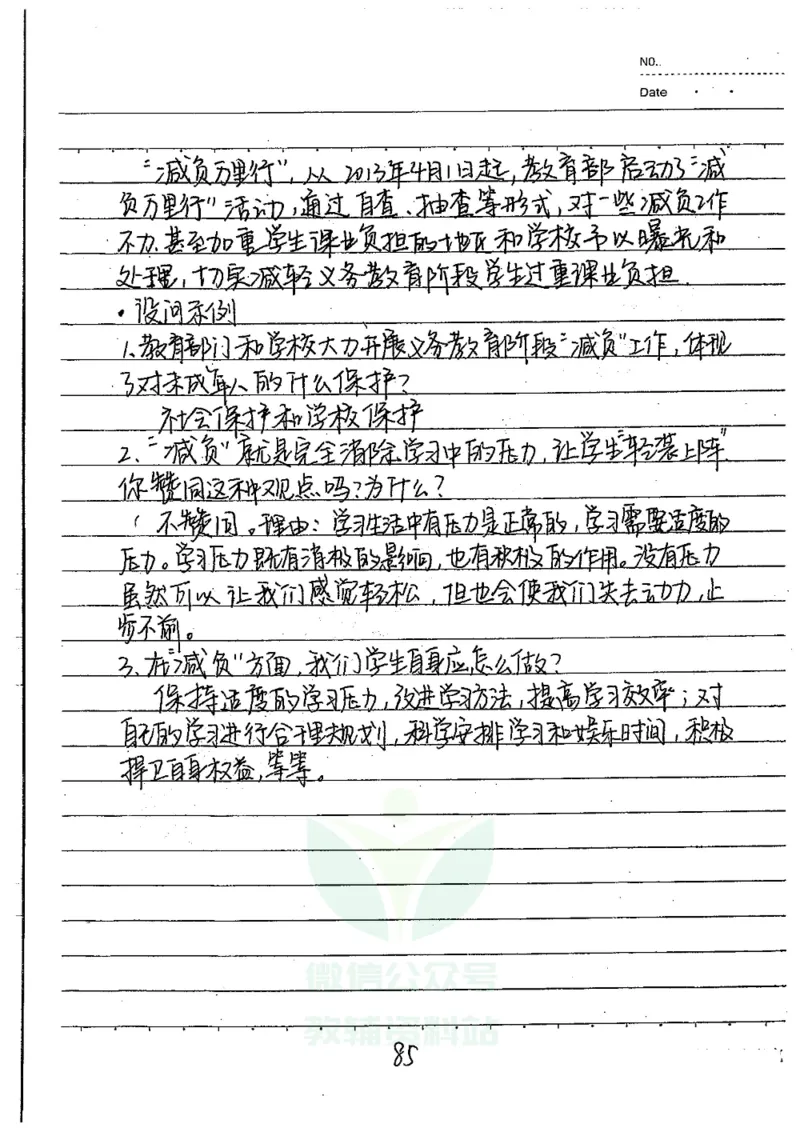 NO.
Date
"减负万里行", 从2013年4月1日起,教育部启动了"减
负万里行"活动,通过自查、抽查等形式,对一些减负工作
不力、甚至加重学生课业负担的地区和学校予以曝光和
处理,切实减轻义务教育阶段学生过重课业负担.
·设问示例
1.教育部门和学校大力开展义务教育阶段"减负"工作,体现
了对未成年人的什么保护?
社会保护和学校保护
2."减负"就是完全消除学习中的压力,让学生"轻装上阵"
你赞同这种观点吗?为什么?
不赞同。理由:学习生活中有压力是正常的,学习需要适度的
压力。学习压力既有消极的影响,也有积极的作用。没有压力
虽然可以让我们感觉轻松,但也会使我们失去动力,止
步不前。
3.在"减负"方面,我们学生自身应怎么做?
保持适度的学习压力,改进学习方法,提高学习效率;对
自己的学习进行合理规划,科学安排学习和娱乐时间,积极
捍卫自身权益,等等。
微信公众号
教辅资料站
85